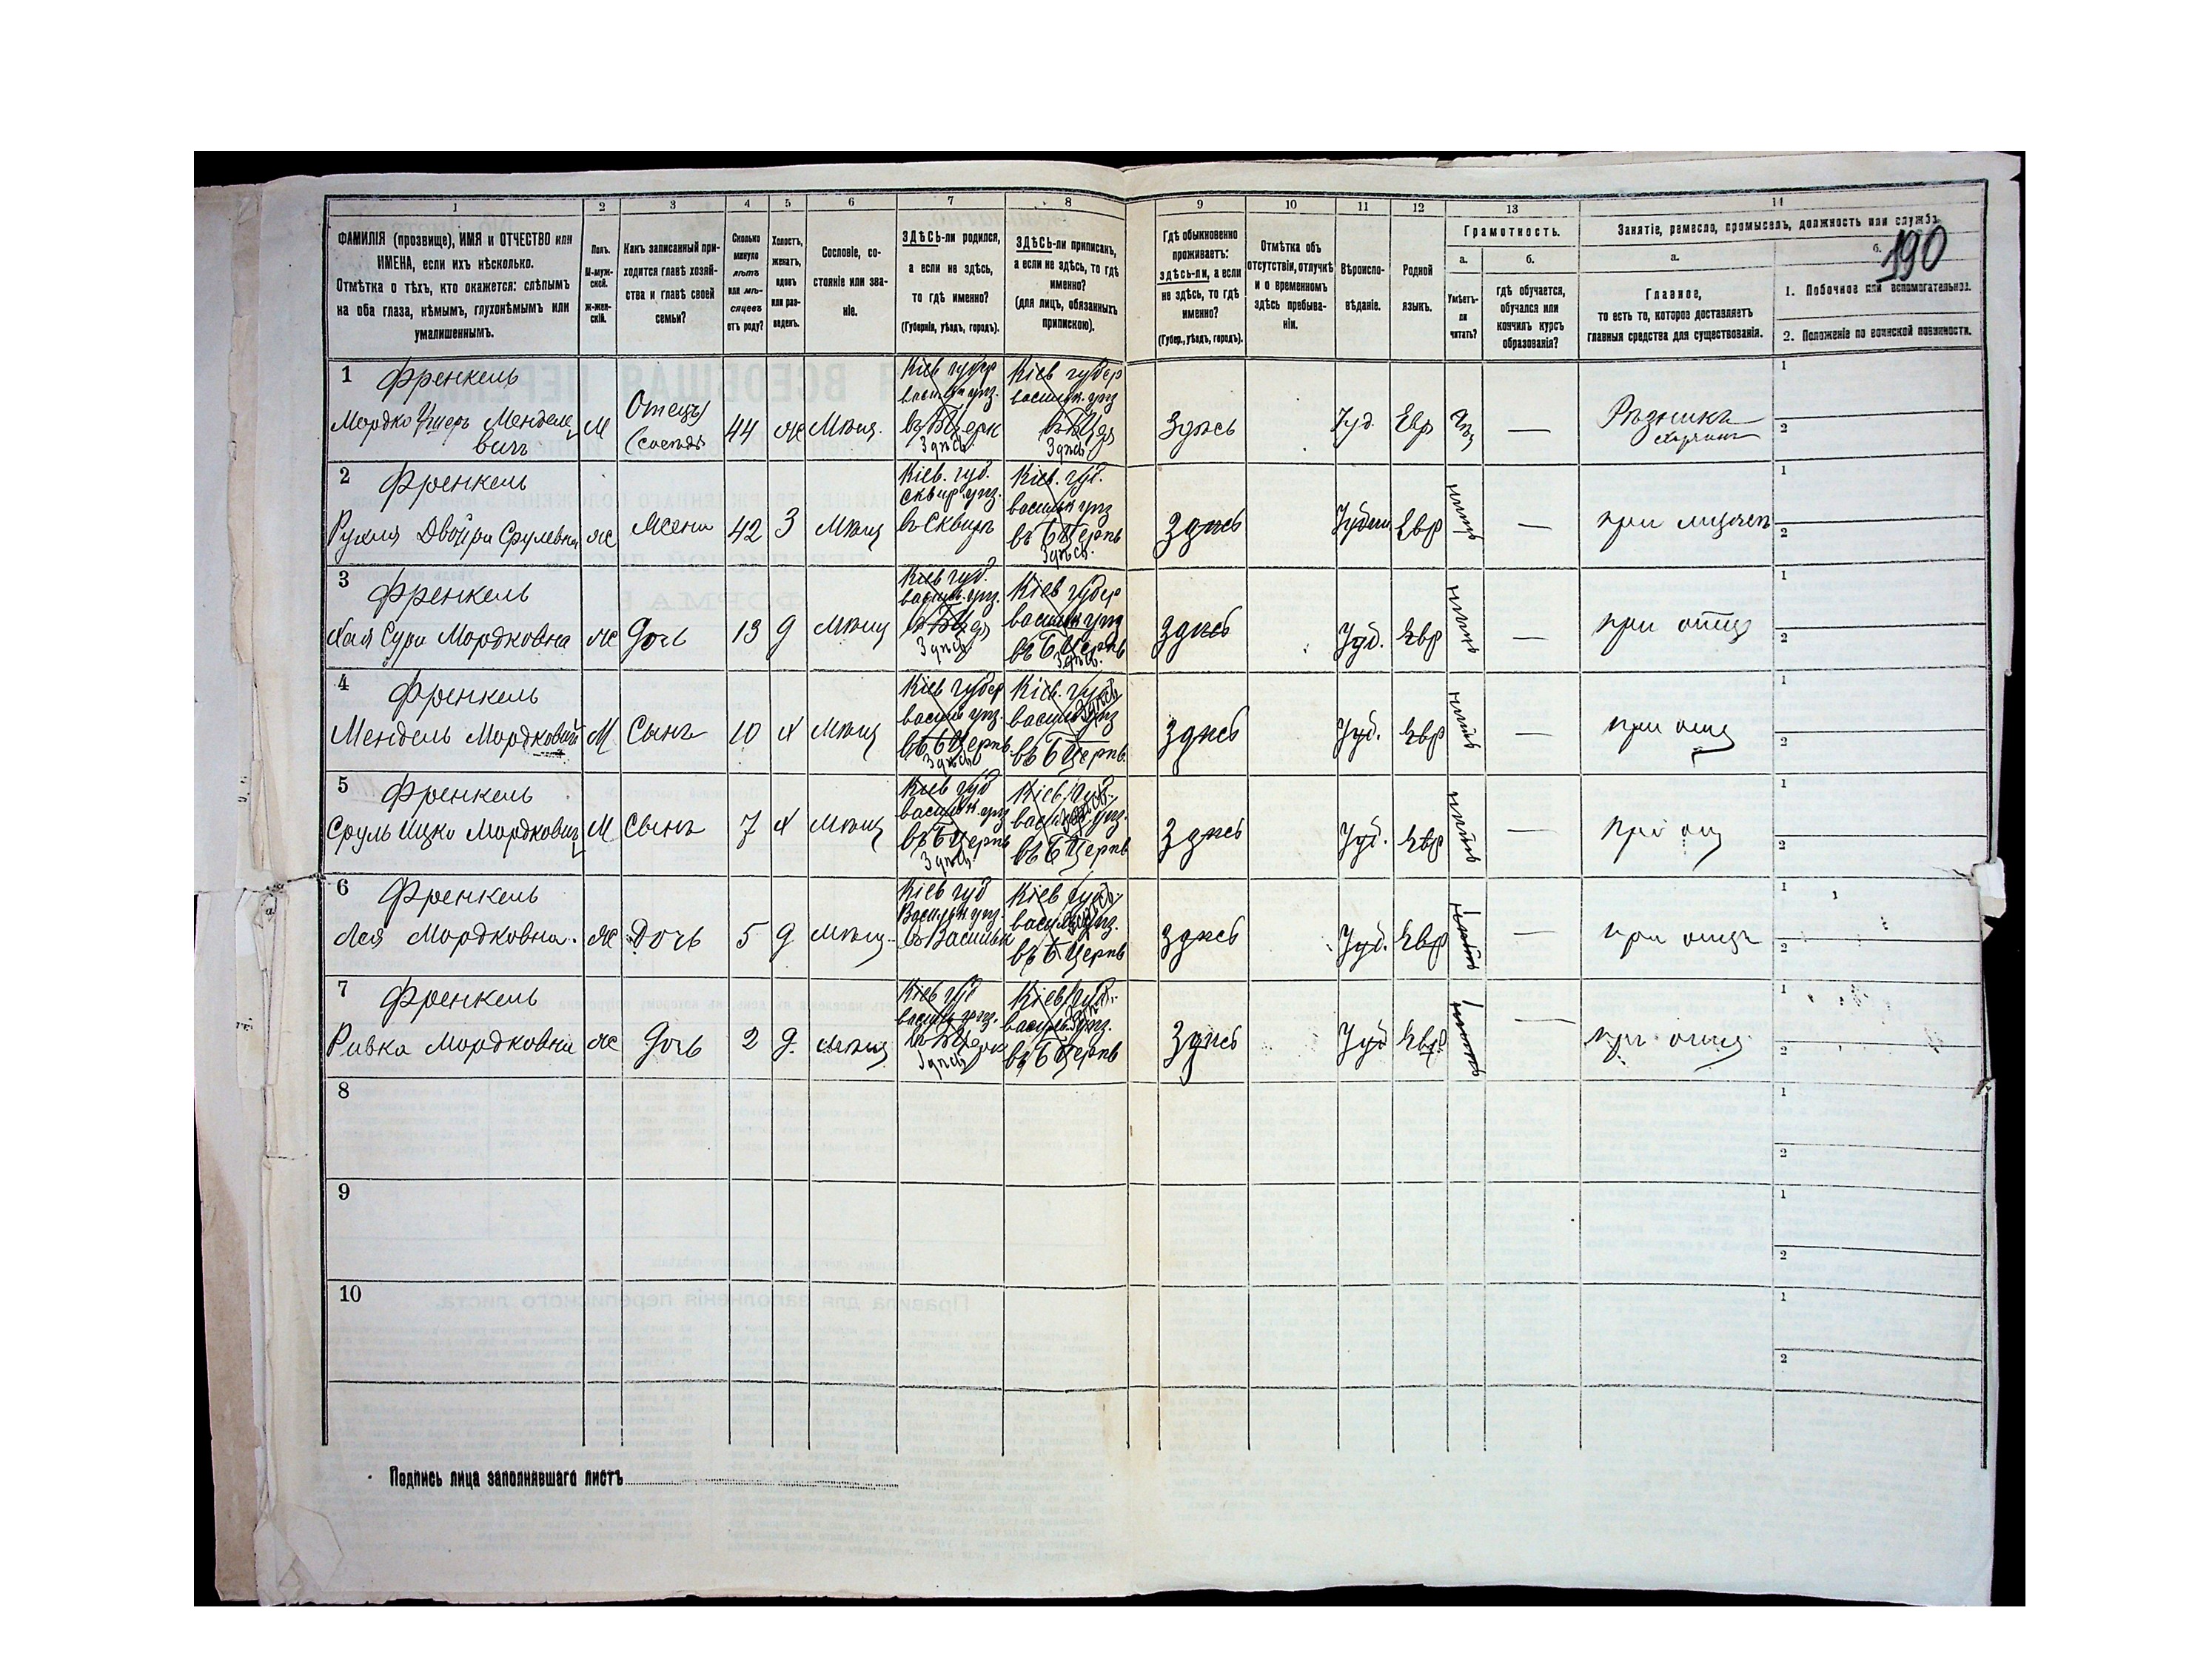 1 2 3 4 5 6 7 8 9 10 11 12 13 14
ФАМИЛІЯ (прозвище), ИМЯ и ОТЧЕСТВО или
ИМЕНА, если ихъ нѣсколько.
Отмѣтка о тѣхъ, кто окажется: слѣпымъ
на оба глаза, нѣмымъ, глухонѣмымъ или
умалишеннымъ.
Полъ.
М-муж-
ской.
Ж-жен-
скій.
Какъ записанный при-
ходится главѣ хозяй-
ства и главѣ своей
семьи?
Сколько
минуло
лѣтъ
или мѣ-
сяцевъ
отъ роду?
Холостъ,
женатъ,
вдовъ
или раз-
веденъ.
Сословіе, со-
стояніе или зва-
ніе.
ЗДѢСЬ-ли родился,
а если не здѣсь,
то гдѣ именно?
(Губернія, уѣздъ, городъ).
ЗДѢСЬ-ли приписанъ,
а если не здѣсь, то гдѣ
именно?
(для лицъ, обязанныхъ
припискою).
Гдѣ обыкновенно
проживаетъ:
здѣсь-ли, а если
не здѣсь, то гдѣ
именно?
(Губер., уѣздъ, городъ).
Отмѣтка объ
отсутствіи, отлучкѣ
и о временномъ
здѣсь пребыва-
ніи.
Вѣроиспо-
вѣданіе.
Родной
языкъ.
Грамотность.
а.
Умѣетъ-
ли
читать?
б.
гдѣ обучается,
обучался или
кончилъ курсъ
образованія?
Занятіе, ремесло, промыселъ, должность или служба
190
а.
Главное,
то есть то, которое доставляетъ
главныя средства для существованія.
б.
1. Побочное или вспомогательное.
2. Положеніе по воинской повинности.
1 Френкель
Мордко Менделе
вичъ
М
44
ж
Мѣщ.
Кіев губер
Здѣсь
Кіев губер
Здѣсь
Здѣсь
Іуд.
Евр
—
Рѣзникъ
1
2
2 Френкель
Рухля Двойра Срулевна
ж
Жена
42
З
Мѣщ
Кіев. губ.
сквир. уѣз.
въ Сквирѣ
Кіев. губ.
васильк уѣз
въ Б Церкв
Здѣсь.
Здѣсь
Евр
—
1
2
3 Френкель
Хая Сура Мордковна
ж
Дочь
13
д
Мѣщ
Кіев губ.
Здѣсь
Кіев губер
въ Б Церкв
Здѣсь.
здѣсь
Іуд.
Евр
—
при отцѣ
1
2
4 Френкель
Мендель Мордковичъ
М
Сынъ
10
х
Мѣщ
Кіев губер
въ Б Церкв.
Здѣсь
Кіев. губ
Здѣсь
въ Б Церкв.
Здѣсь
Іуд.
Евр
—
при отц
1
2
5 Френкель
Сруль Ицко Мордкович
М
Сынъ
7
х
Мѣщ
Кіев губ
въ Б Церкв
Здѣсь
Кіев губ.
въ Б Церкв
Здѣсь
Іуд.
Евр
—
при отц
1
2
6 Френкель
Лея Мордковна.
ж
Дочь
5
д
Мѣщ.
Кіев губ
Васильк уѣз.
въ Васильк
Кіев губ
въ Б Церкв
здѣсь
Іуд.
Евр
—
при отцѣ
1
2
7 Френкель
Ривка Мордковна
ж
Дочь
2
д.
Мѣщ
Кіев губ
Здѣсь
Кіев губ.
въ Б Церкв
Здѣсь
Іуд
Евр.
—
при отцѣ
1
2
8
1
2
9
1
2
10
1
2
Подпись лица заполнявшаго листъ